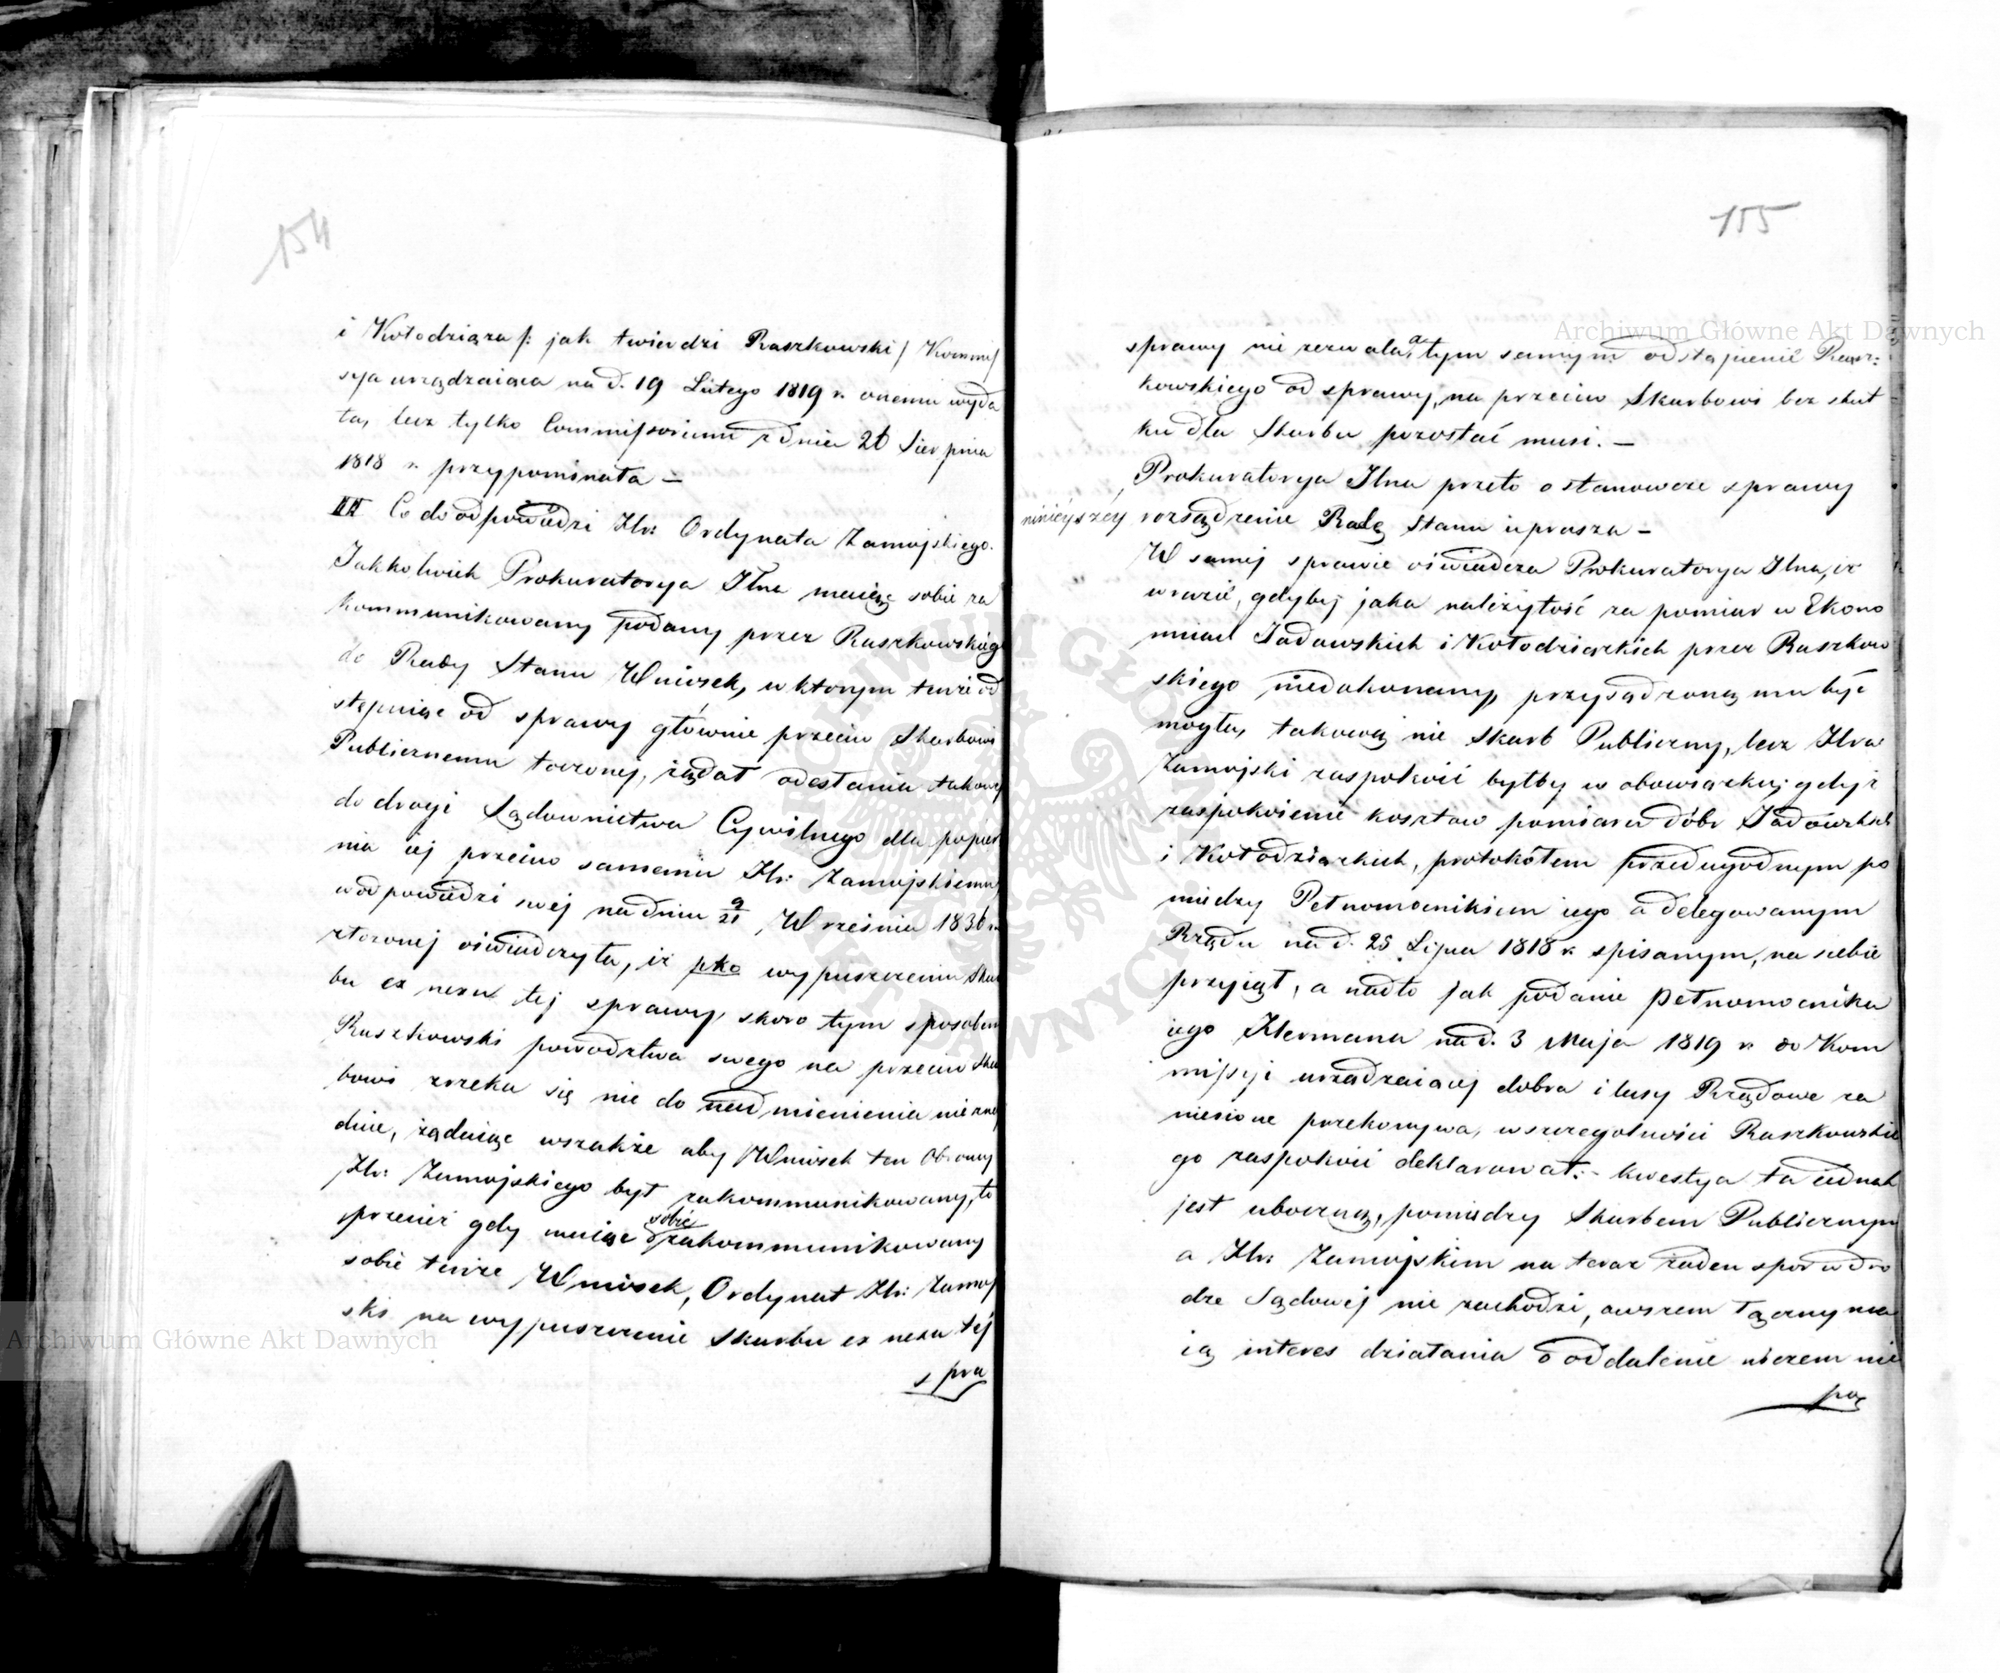 154
i Kołodziąza /: jak twierdzi Raszkowski / Kommis
sya urządzaiąca na d. 19 Lutego 1819 r. onemu wyda
ła, lecz tylko Commissorium z dnia 20 Sierpnia
1818 r. przypominała —
III Co do odpowiedzi Hr: Ordynata Zamojskiego.
Jakkolwiek Prokuratorya Jlna maiąc sobie za
kommunikowany podany przez Raszkowskieg
do Rady Stanu Wniosek, w ktorym tenże od
stępuiąc od sprawy głównie przeciw Skarbowi
Publicznemu toczonej, żądał odesłania takowej
do drogi Sądownictwa Cywilnego dla popier
nia iej przeciw samemu Hr: Zamojskiemu,
w odpowiedzi swej na dniu 9/21 Września 1836 r.
złożonej oświadczyła, iż pko wypuszczeniu Skar
bu ex nexu tej sprawy, skoro tym sposobem
Raszkowski powodztwa swego na przeciw Skar
bowi zrzeka się nic do nadmienienia nie znaj
duie, żądaiąc wszakże aby Wniosek ten Obrony
Hr: Zamojskiego był zakommunikowany, to
przecież gdy maiąc sobie zakommunikowany
sobie tenże Wniosek, Ordynat Hr: Zamoj
ski na wypuszczenie Skarbu ex nexu tej
spra
155
sprawy nie zezwala, a tym samym odstąpienie Rasz:
kowskiego od sprawy, na przeciw Skarbowi bez skut
ku dla Skarbu pozostać musi. —
Prokuratorya Jlna przeto o stanowcze sprawy
ninieyszéy rozsądzenie Radę Stanu uprasza —
W samej sprawie oświadcza Prokuratorya Jlna, iż
w razie, gdyby jaka należytość za pomiar w Ekono
miach Jadowskich i Kołodziązkich przez Raszkow
skiego niedokonany, przysądzoną mu być
mogła, takową nie Skarb Publiczny, lecz Hra
Zamojski zaspokoić byłby w obowiązku; gdyż
zaspokoienie kosztow pomiaru dóbr Jadówskich
i Kołodziązkich, protokółem przedugodnym po
miedzy Pełnomocnikiem iego a delegowanym
Rządu na d. 25 Lipca 1818 r. spisanym, na siebie
przyiął, a nadto jak podanie pełnomocnika
iego Hermana na d. 3 Maja 1819 r. do Kom
missyi urządzaiącej dobra i lasy Rządowe za
niesione przekonywa, w szczególności Raszkowskie
go zaspokoić deklarował: — kwestya ta iednak
jest uboczną, pomiedzy Skarbem Publicznym
a Hr: Zamojskim na teraz żaden spór w dro
dze Sądowej nie zachodzi, owszem łączny ma
ią interes działania o oddalenie niczem nie
po